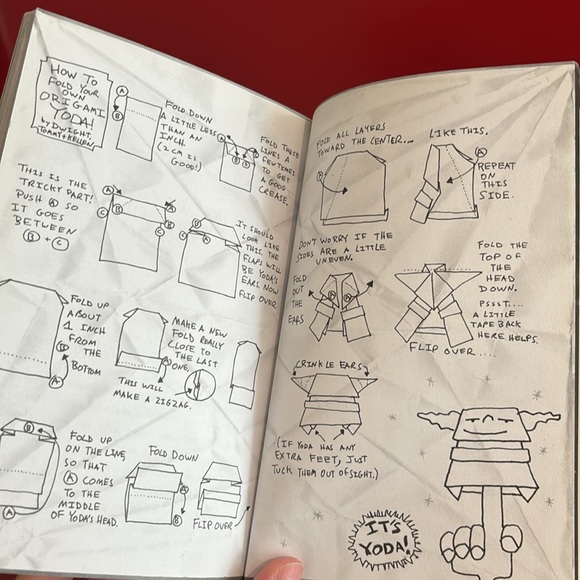 HOW TO
FOLD YOUR
OWN
ORIGAMI
YODA!
by DWIGHT,
TOMMY+KELLEN
A
B
FOLD DOWN
A LITTLE LESS
THAN AN
INCH.
(2 CM IS
GOOD!)
FOLD THESE
LINES A
FEW TIMES
TO GET
A GOOD
CREASE.
THIS IS THE
TRICKY PART!
PUSH A SO
IT GOES
BETWEEN
B + C
A
A
B
B
C
C
B
A
C
IT SHOULD
LOOK LIKE
THIS. THE
FLAPS WILL
BE YODA'S
EARS. NOW
FLIP OVER.
FOLD UP
ABOUT
1 INCH
FROM THE
BOTTOM
B
A
MAKE A NEW
FOLD REALLY
CLOSE TO
THE LAST
ONE.
THIS WILL
MAKE A ZIGZAG.
B
A
FOLD UP
ON THE LINE
SO THAT
A COMES
TO THE
MIDDLE
OF YODA'S HEAD.
FOLD DOWN
A
B
FLIP OVER
FOLD ALL LAYERS
TOWARD THE CENTER...
A
LIKE THIS.
A
REPEAT
ON
THIS
SIDE.
DON'T WORRY IF THE
SIDES ARE A LITTLE
UNEVEN.
FOLD
OUT
THE
EARS
FOLD THE
TOP OF
THE
HEAD
DOWN.
PSSST....
A LITTLE
TAPE BACK
HERE HELPS.
FLIP OVER...
CRINKLE EARS
(IF YODA HAS ANY
EXTRA FEET, JUST
TUCK THEM OUT OF SIGHT.)
IT'S
YODA!